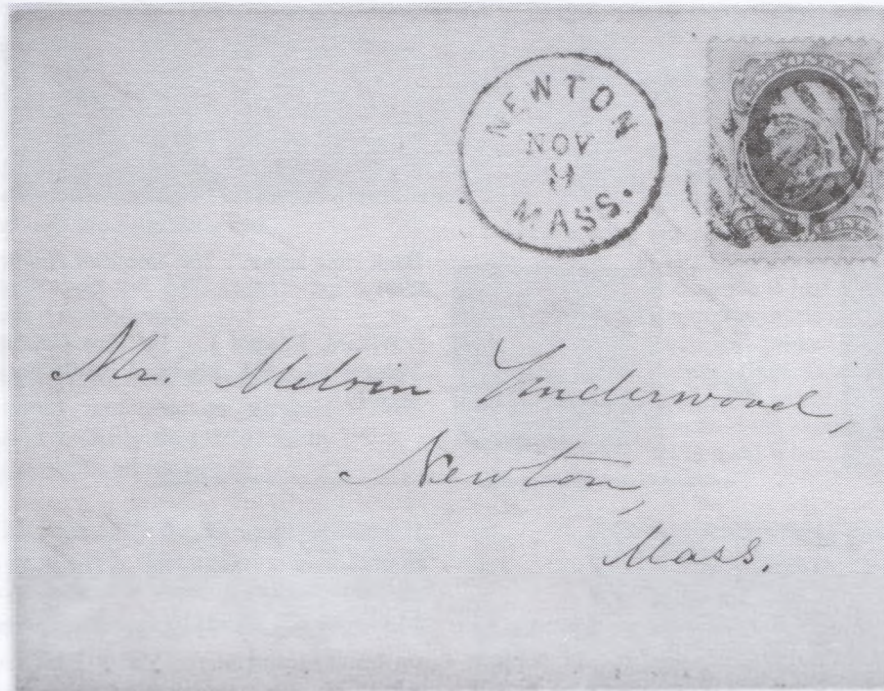 NEWTON
NOV
9
MASS.
Mr. Melvin Underwood,
Newton,
Mass.